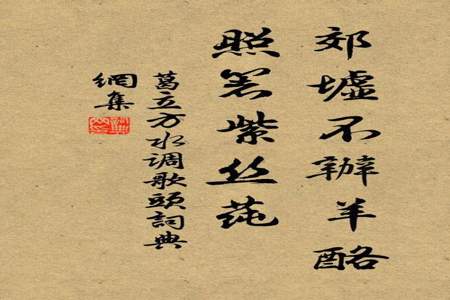 郊墟不辦羊酪
照箸紫丝莼
葛立方水调歌頭詞典
網集